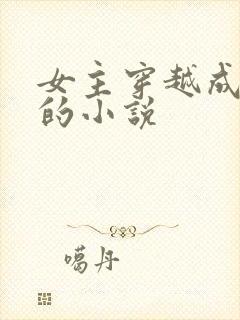 女主穿越成
的小說
噶丹